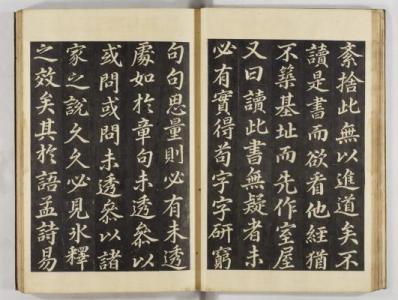 紊捨此無以進道矣不
讀是書而欲看他經猶
不築基址而先作室屋
又曰讀此書無疑者未
必有實得苟字字研窮
句句思量則必有未透
處如於章句未透叅以
或問或問未透叅以諸
家之說久久必見氷釋
之效矣其於語孟詩易